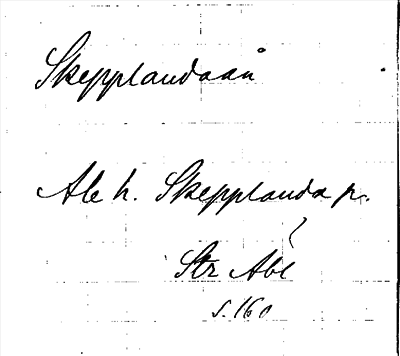 Skepplandaån
Ale h. Skepplanda p.
Str Abl
s. 160